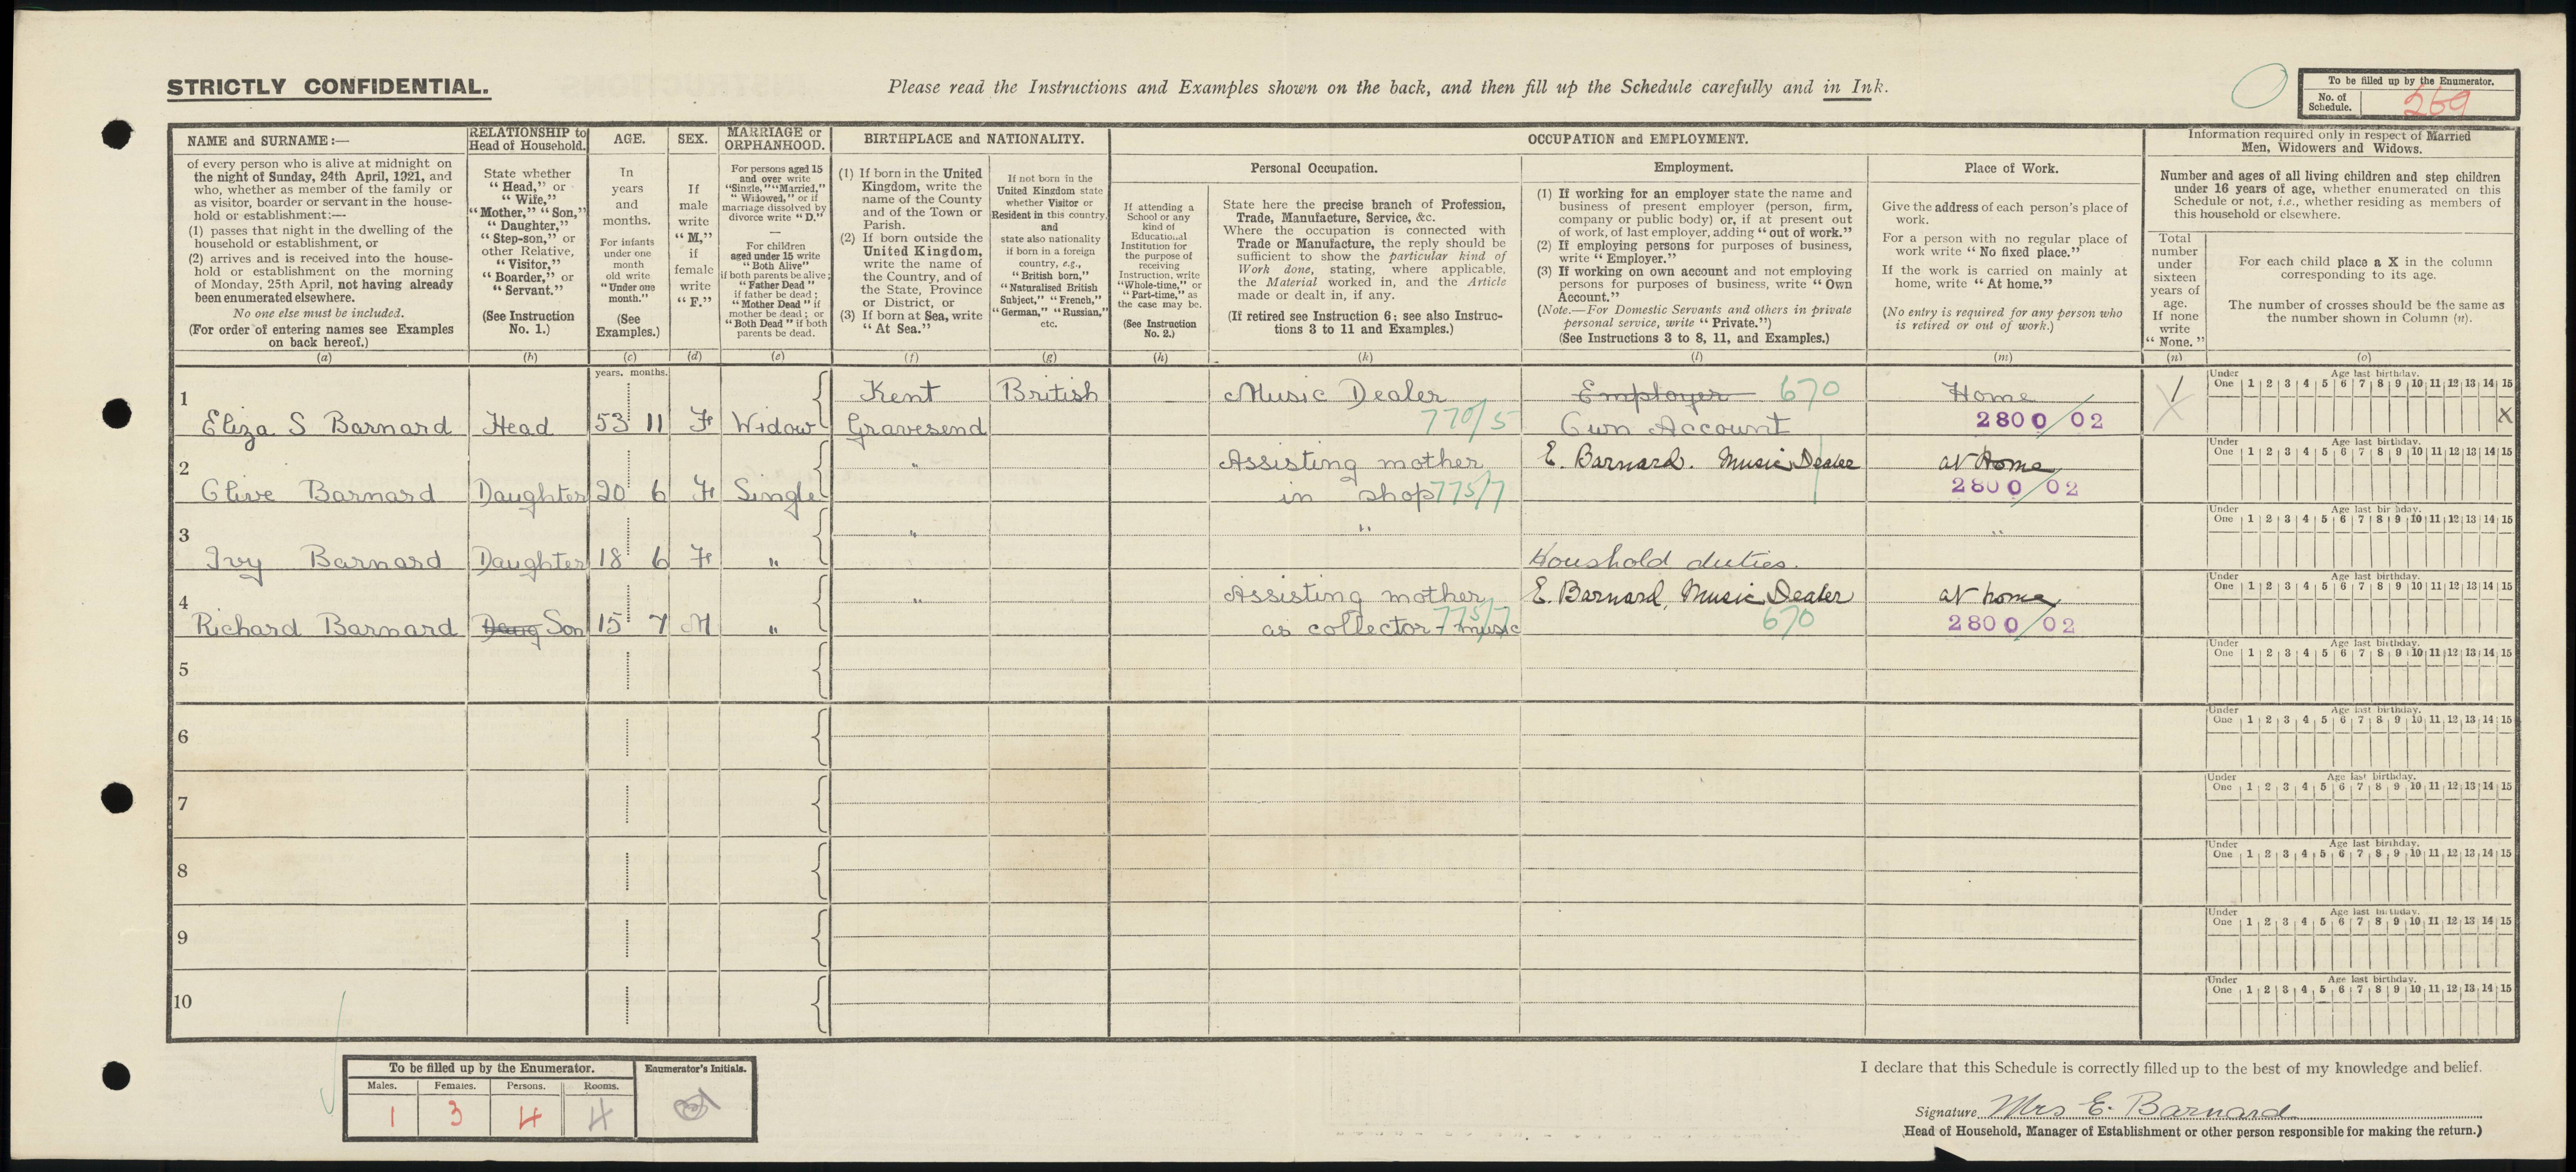 STRICTLY CONFIDENTIAL.
Please read the Instructions and Examples shown on the back, and then fill up the Schedule carefully and in Ink.
To be filled up by the Enumerator.
No. of Schedule.
269
NAME and SURNAME:—
of every person who is alive at midnight on
the night of Sunday, 24th April, 1921, and
who, whether as member of the family or
as visitor, boarder or servant in the house-
hold or establishment:—
(1) passes that night in the dwelling of the
household or establishment, or
(2) arrives and is received into the house-
hold or establishment on the morning
of Monday, 25th April, not having already
been enumerated elsewhere.
No one else must be included.
(For order of entering names see Examples
on back hereof.)
(a)
RELATIONSHIP to
Head of Household.
State whether
"Head," or
"Wife,"
"Mother," "Son,"
"Daughter,"
"Step-son," or
other Relative,
"Visitor,"
"Boarder," or
"Servant."
(See Instruction
No. 1.)
(b)
AGE.
In
years
and
months.
For infants
under one
month
old write
"Under one
month."
(See
Examples.)
(c)
SEX.
If
male
write
"M,"
if
female
write
"F."
(d)
MARRIAGE or
ORPHANHOOD.
For persons aged 15
and over write
"Single," "Married,"
"Widowed," or if
marriage dissolved by
divorce write "D."
—
For children
aged under 15 write
"Both Alive"
if both parents be alive;
"Father Dead"
if father be dead;
"Mother Dead" if
mother be dead; or
"Both Dead" if both
parents be dead.
(e)
BIRTHPLACE and NATIONALITY.
(1) If born in the United
Kingdom, write the
name of the County
and of the Town or
Parish.
(2) If born outside the
United Kingdom,
write the name of
the Country, and of
the State, Province
or District, or
(3) If born at Sea, write
"At Sea."
(f)
If not born in the
United Kingdom state
whether Visitor or
Resident in this country,
and
state also nationality
if born in a foreign
country, e.g.,
"British born,"
"Naturalised British
Subject," "French,"
"German," "Russian,"
etc.
(g)
OCCUPATION and EMPLOYMENT.
If attending a
School or any
kind of
Educational
Institution for
the purpose of
receiving
Instruction, write
"Whole-time," or
"Part-time," as
the case may be.
(See Instruction
No. 2.)
(h)
Personal Occupation.
State here the precise branch of Profession,
Trade, Manufacture, Service, &c.
Where the occupation is connected with
Trade or Manufacture, the reply should be
sufficient to show the particular kind of
Work done, stating, where applicable,
the Material worked in, and the Article
made or dealt in, if any.
(If retired see Instruction 6; see also Instruc-
tions 3 to 11 and Examples.)
(k)
Employment.
(1) If working for an employer state the name and
business of present employer (person, firm,
company or public body) or, if at present out
of work, of last employer, adding "out of work."
(2) If employing persons for purposes of business,
write "Employer."
(3) If working on own account and not employing
persons for purposes of business, write "Own
Account."
(Note.—For Domestic Servants and others in private
personal service, write "Private.")
(See Instructions 3 to 8, 11, and Examples.)
(l)
Place of Work.
Give the address of each person's place of
work.
For a person with no regular place of
work write "No fixed place."
If the work is carried on mainly at
home, write "At home."
(No entry is required for any person who
is retired or out of work.)
(m)
Information required only in respect of Married
Men, Widowers and Widows.
Number and ages of all living children and step children
under 16 years of age, whether enumerated on this
Schedule or not, i.e., whether residing as members of
this household or elsewhere.
Total
number
under
sixteen
years of
age.
If none
write
"None."
(n)
For each child place a X in the column
corresponding to its age.
The number of crosses should be the same as
the number shown in Column (n).
(o)
years. months.
1
Kent British Music Dealer Employer 670 Home 1
Eliza S Barnard Head 53 11 F Widow Gravesend 770/5 Own Account 2800/02 X
Under One Age last birthday. 1 2 3 4 5 6 7 8 9 10 11 12 13 14 15
2
" Assisting mother E. Barnard. Music Dealer at Home
Olive Barnard Daughter 20 6 F Single in shop 775/7 2800/02
Under One Age last birthday. 1 2 3 4 5 6 7 8 9 10 11 12 13 14 15
3
" " "
Ivy Barnard Daughter 18 6 F " Houshold duties.
Under One Age last birthday. 1 2 3 4 5 6 7 8 9 10 11 12 13 14 15
4
" Assisting mother E. Barnard, Music Dealer at home
Richard Barnard Daug Son 15 7 M " as collector - music 775/7 670 2800/02
Under One Age last birthday. 1 2 3 4 5 6 7 8 9 10 11 12 13 14 15
5
Under One Age last birthday. 1 2 3 4 5 6 7 8 9 10 11 12 13 14 15
6
Under One Age last birthday. 1 2 3 4 5 6 7 8 9 10 11 12 13 14 15
7
Under One Age last birthday. 1 2 3 4 5 6 7 8 9 10 11 12 13 14 15
8
Under One Age last birthday. 1 2 3 4 5 6 7 8 9 10 11 12 13 14 15
9
Under One Age last birthday. 1 2 3 4 5 6 7 8 9 10 11 12 13 14 15
10
Under One Age last birthday. 1 2 3 4 5 6 7 8 9 10 11 12 13 14 15
To be filled up by the Enumerator.
Enumerator's Initials.
Males. Females. Persons. Rooms.
1 3 4 4
I declare that this Schedule is correctly filled up to the best of my knowledge and belief.
Signature Mrs E. Barnard
Head of Household, Manager of Establishment or other person responsible for making the return.)